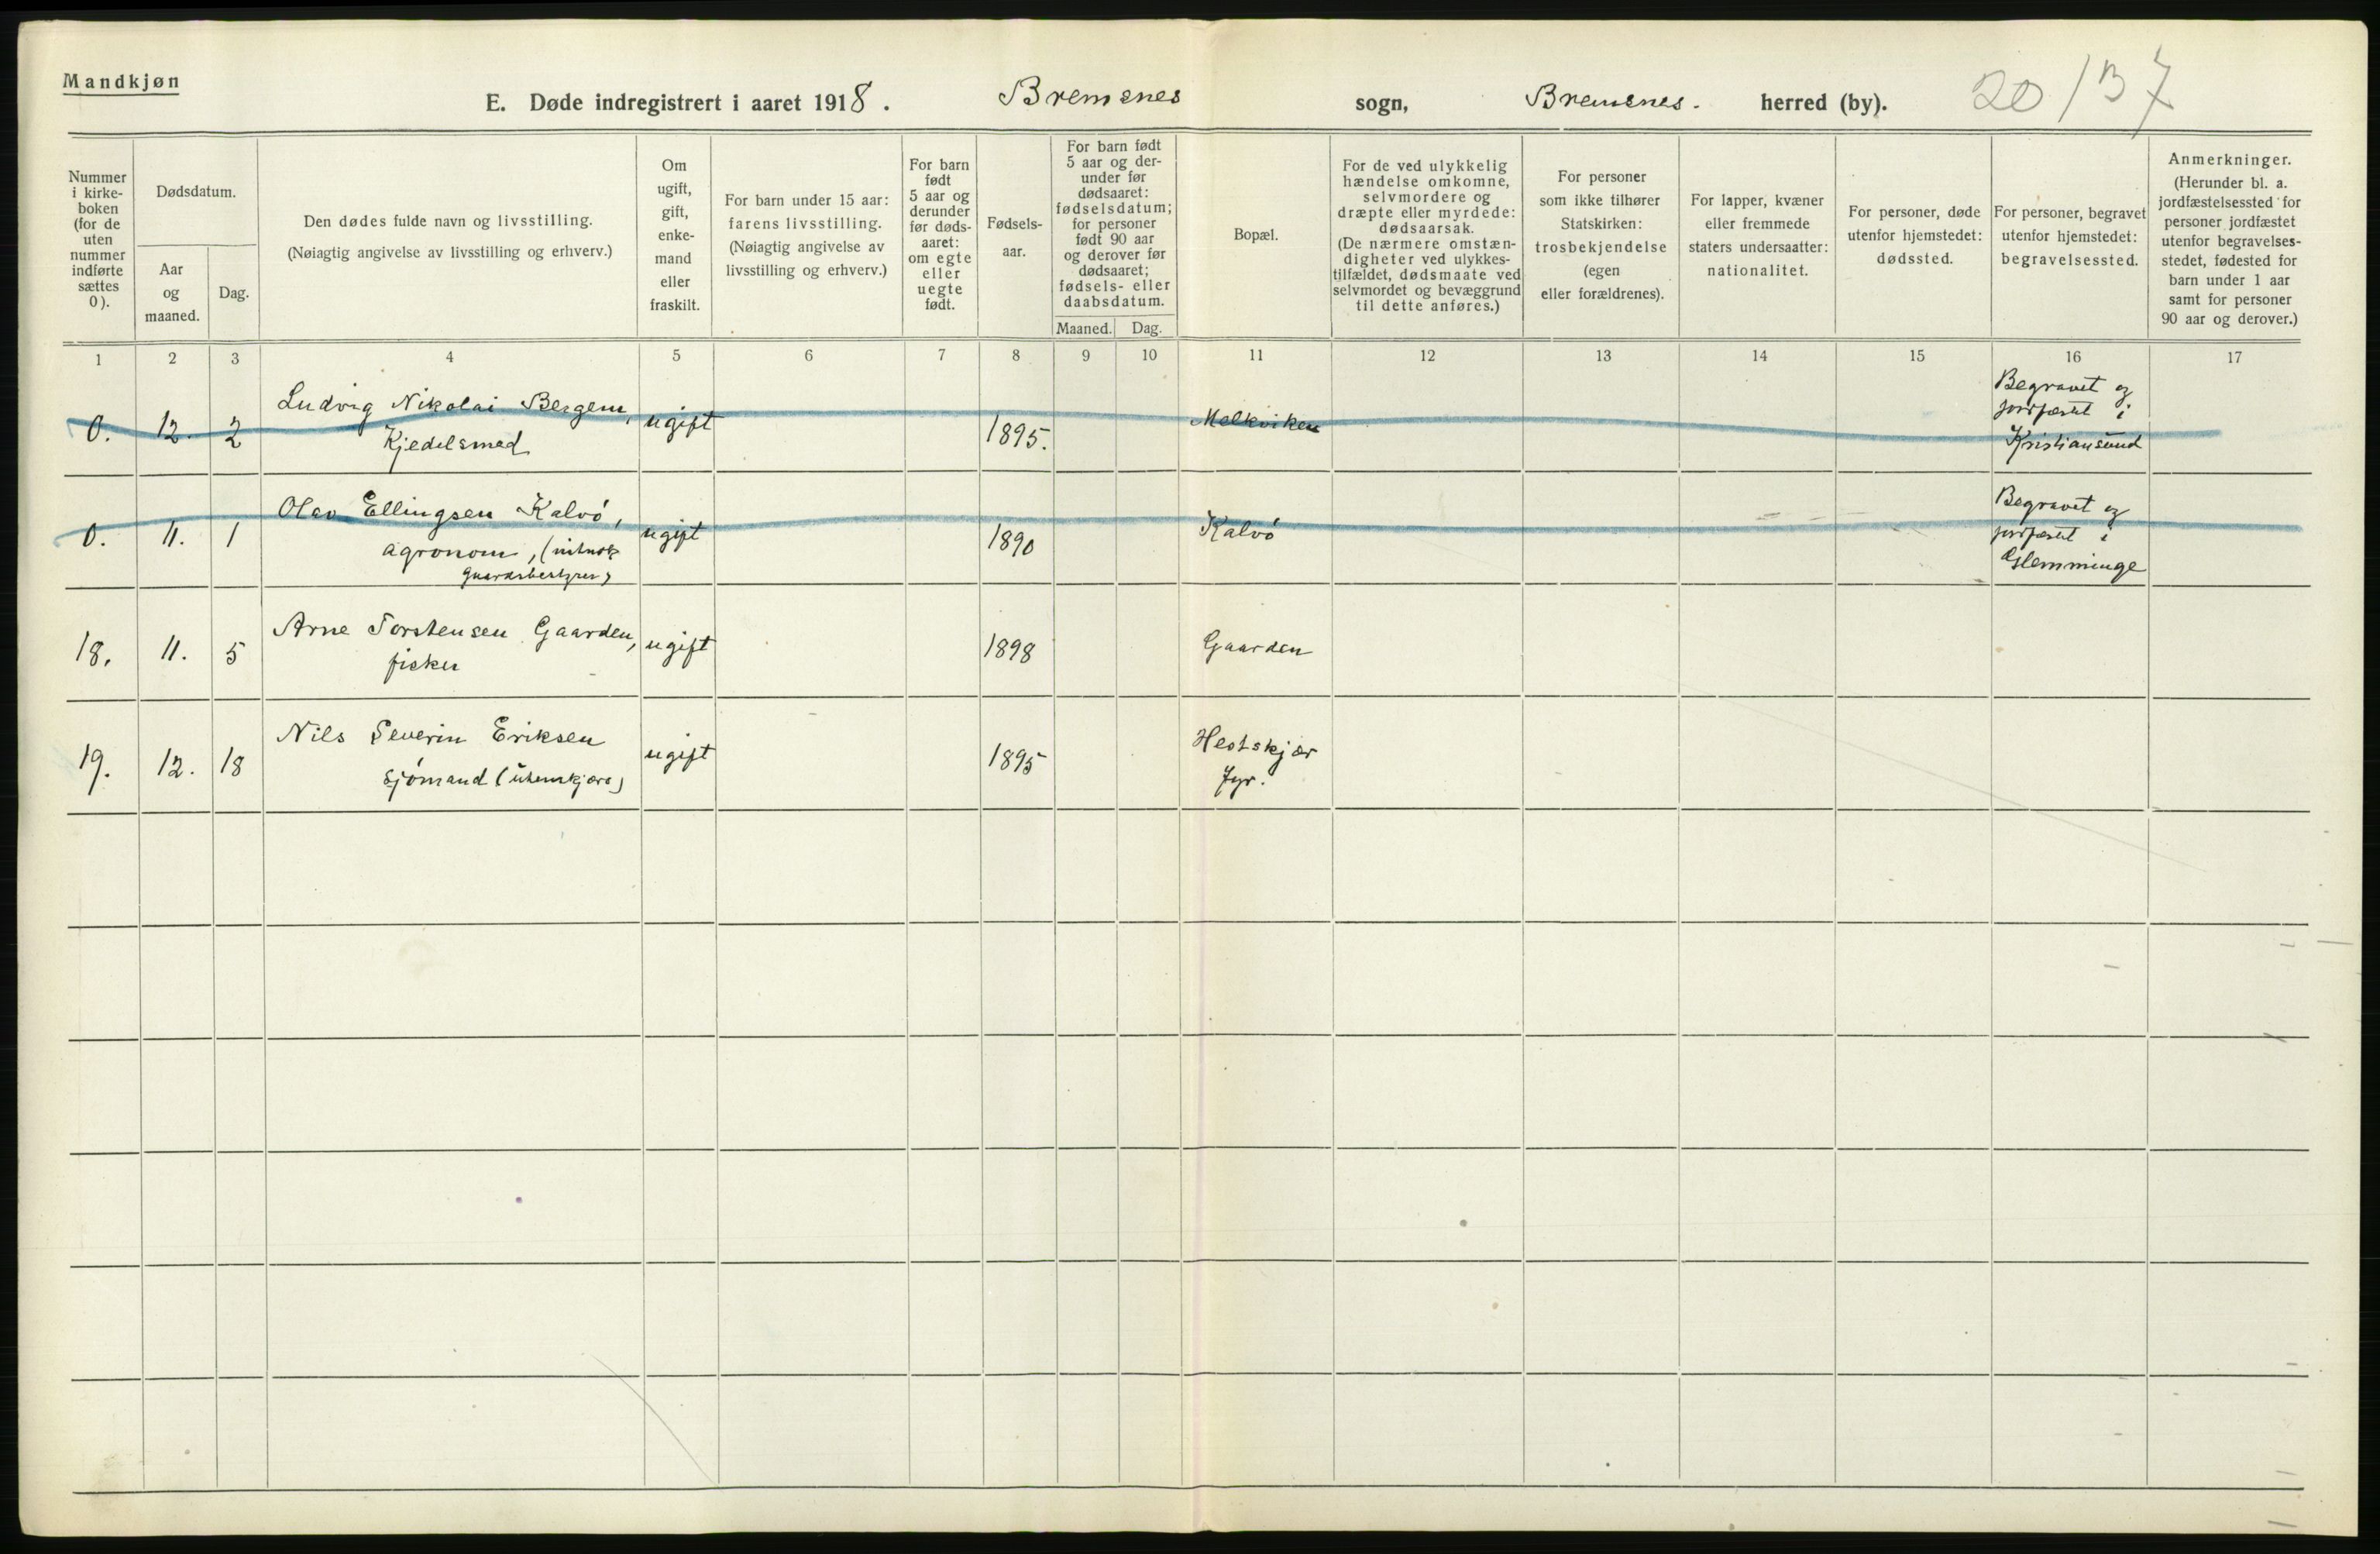 Mandkjøn
E. Døde indregistrert i aaret 1918. Bremsnes sogn, Bremsnes. herred (by). 20/137
Nummer
i kirke-
boken
(for de
uten
nummer
indførte
sættes
0).
Dødsdatum.
Aar
og
maaned.
Dag.
Den dødes fulde navn og livsstilling.
(Nøiagtig angivelse av livsstilling og erhverv.)
Om
ugift,
gift,
enke-
mand
eller
fraskilt.
For barn under 15 aar:
farens livsstilling.
(Nøiagtig angivelse av
livsstilling og erhverv.)
For barn
født
5 aar og
derunder
før døds-
aaret:
om egte
eller
uegte
født.
Fødsels-
aar.
For barn født
5 aar og der-
under før
dødsaaret:
fødselsdatum;
for personer
født 90 aar
og derover før
dødsaaret;
fødsels- eller
daabsdatum.
Maaned. Dag.
Bopæl.
For de ved ulykkelig
hændelse omkomne,
selvmordere og
dræpte eller myrdede:
dødsaarsak.
(De nærmere omstæn-
digheter ved ulykkes-
tilfældet, dødsmaate ved
selvmordet og bevæggrund
til dette anføres.)
For personer
som ikke tilhører
Statskirken:
trosbekjendelse
(egen
eller forældrenes).
For lapper, kvæner
eller fremmede
staters undersaatter:
nationalitet.
For personer, døde
utenfor hjemstedet:
dødssted.
For personer, begravet
utenfor hjemstedet:
begravelsessted.
Anmerkninger.
(Herunder bl. a.
jordfæstelsessted for
personer jordfæstet
utenfor begravelses-
stedet, fødested for
barn under 1 aar
samt for personer
90 aar og derover.)
1 2 3 4 5 6 7 8 9 10 11 12 13 14 15 16 17
0. 12. 2 Ludvig Nikolai Bergem, ugift 1895. Melkviken
Kjedelsmed
Begravet og
jordfæstet i
Kristiansund
0. 11. 1 Olav Ellingsen Kalvó, ugift 1890 Kalvó
agronom,
Begravet og
jordfæstet i
Glemminge
18. 11. 5 Arne Torstensen Gaarden, ugift 1898 Gaarden
fisker
19. 12. 18 Nils Severin Eriksen ugift 1895 Hestskjær
sjómand (utenrikjars) Fyr.